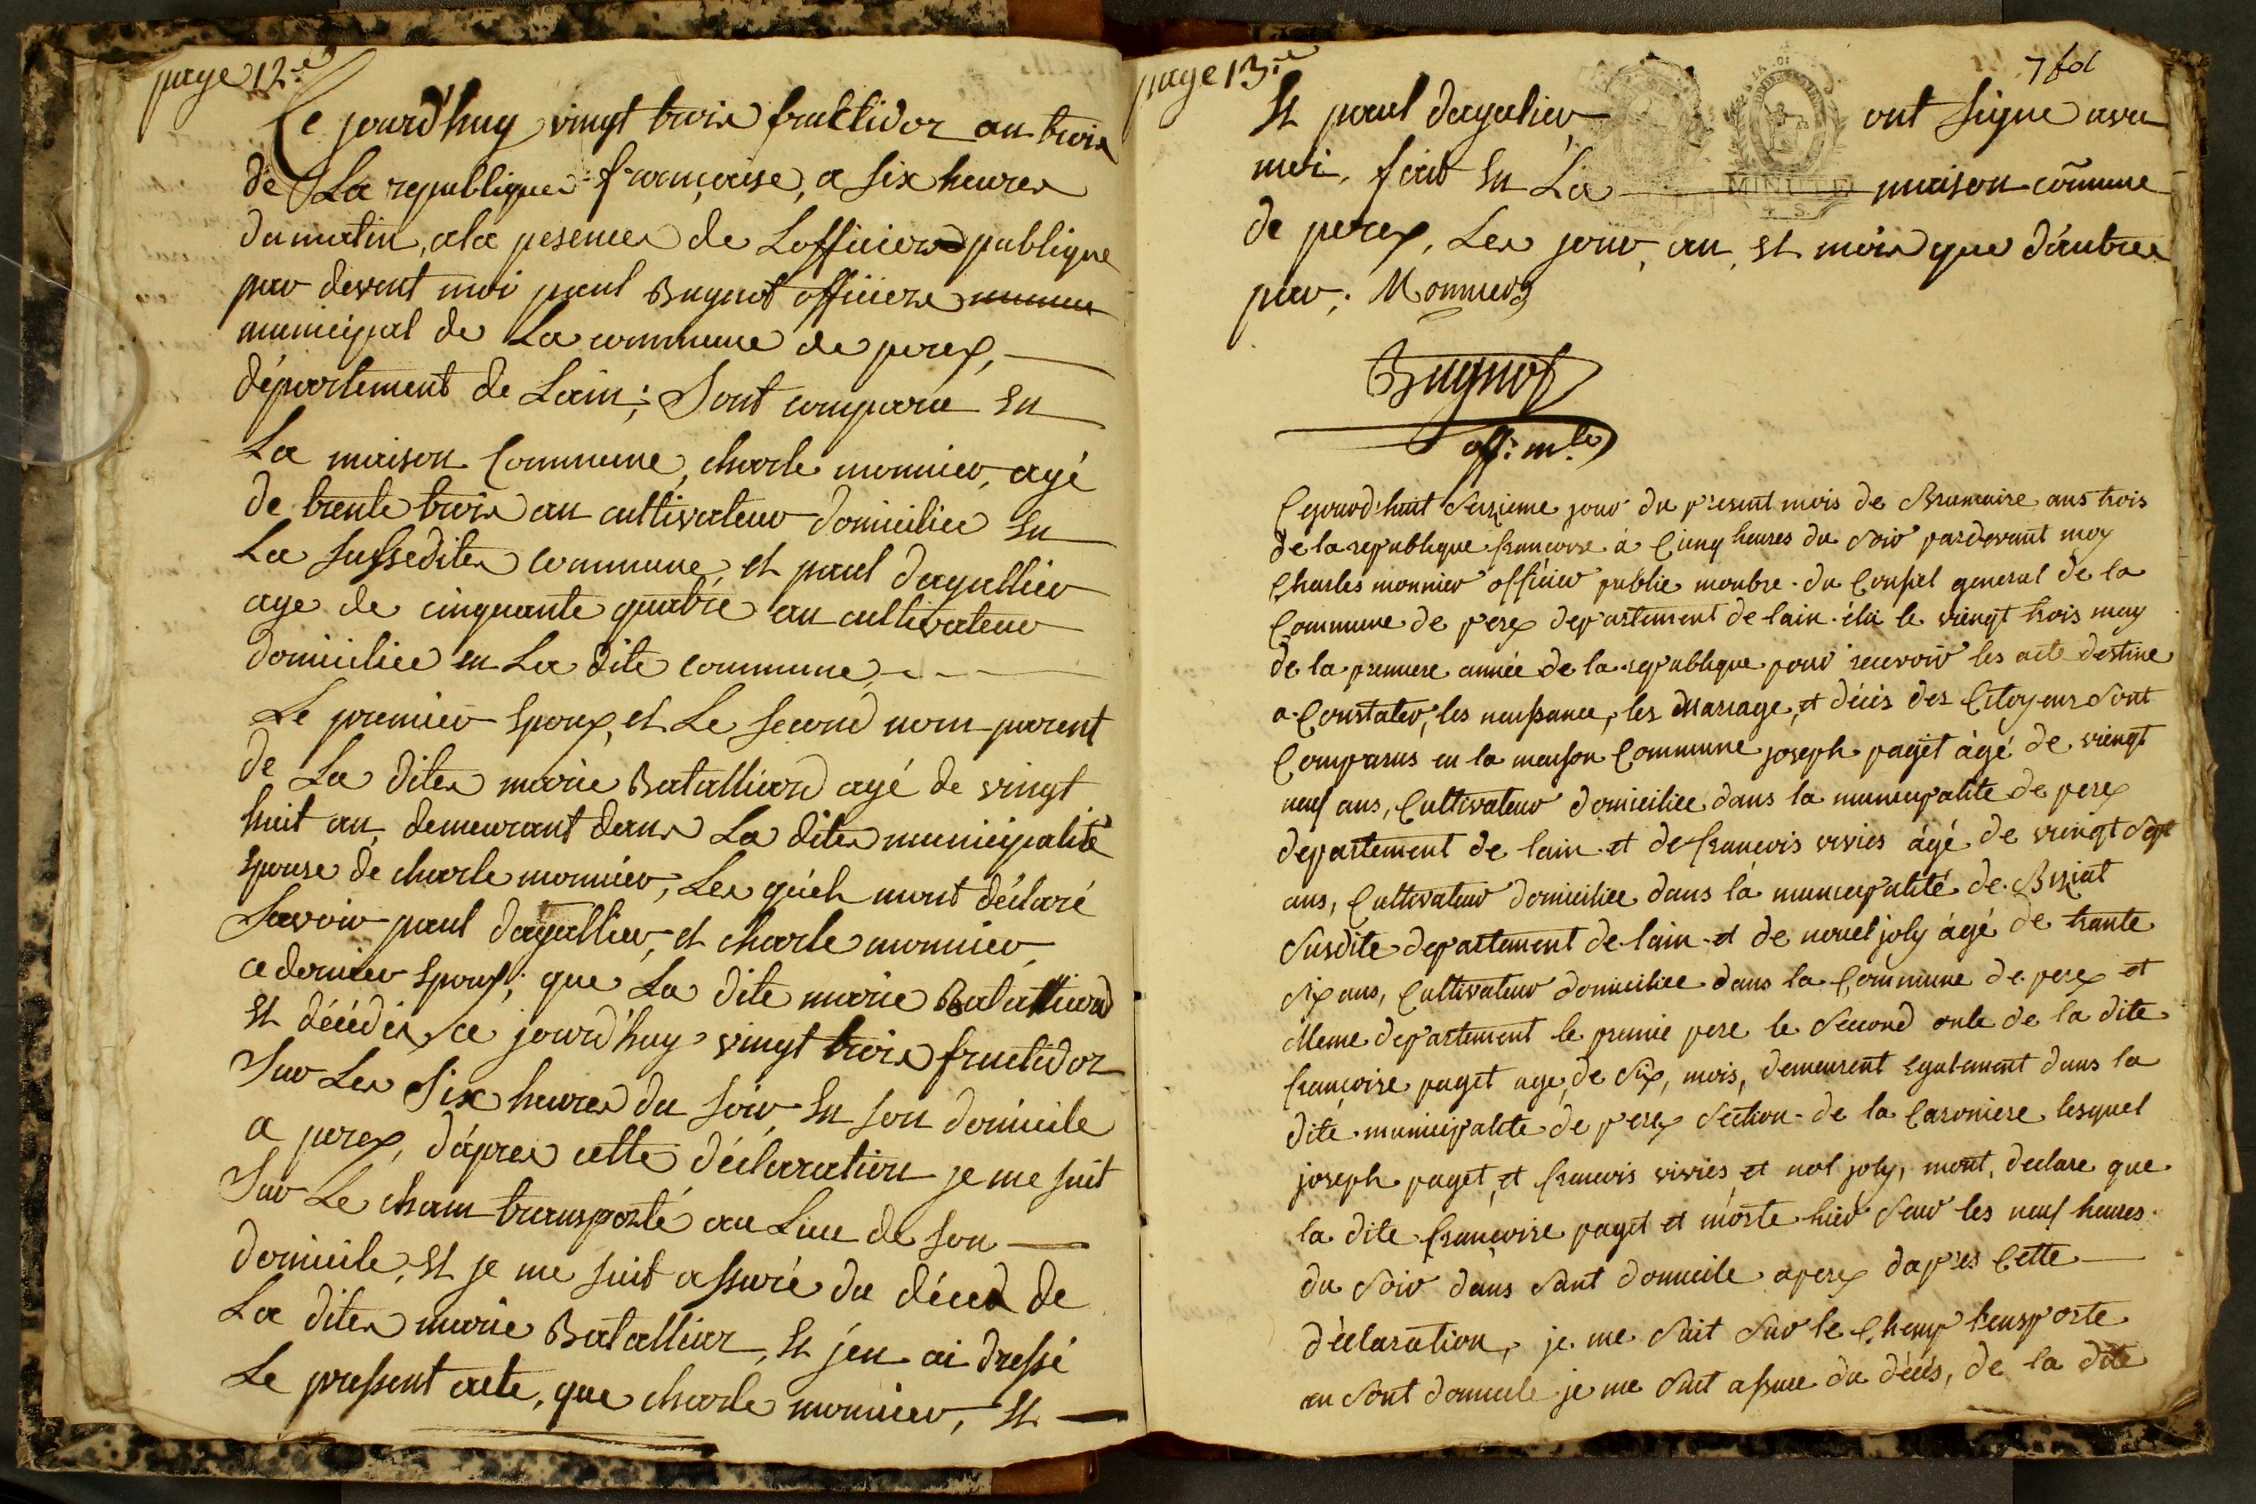 page 12.e
Ce jourd'huy vingt trois fructidor an trois
de La republique française, a six heures
du matin, ala pesence de Lofficier publique
par devent moi paul Bugnot officiere
municipal de La commune de perex,
département de Lain; Sont comparu en
La maison Commune, charle monnier, agé
de trente trois an cultivateur domicilier en
La sussedite commune, et paul dagallier
age de cinquante quatre an cultivateur
domicilier en La dite commune,
Le premier Epoux, et Le second nom parent
de La dite marie Batalliard agé de vingt
huit an, demeurant dans La dite municipalité
Epouse de charle monnier, Les quéls mont déclaré
Savoir paul dagallier, et charle monnier
ce dernier Epoux; que La dite marie Batalliard
Et décédé, ce jourd'huy vingt trois fructidor
Sur Les Six heures du soir, En son domicile
a perex, d'apres cette déclaration je me suit
Sur Le cham transporté au Lieu de son
domicile, Et je me suit assuré du décès de
La dite marie Batalliar, Et j'en ai dressé
Le pressent acte, que charle monnier, Et
page 13.e
7 fol
Et paul dagalier ont signe avec
moi, fait En La maison comune
MINUTE
de perex, Les jour, an, Et mois que d'autre
par; Monnier
Bugnot
off: m.le
Cejourd'huit Seizieme jour du present mois de Brumaire ans trois
de la republique francoise à Cinq heures du Soir pardevant moy
Charles monnier officier public monbre du Conseil general de la
Commune de perex departement de lain élu le viengt trois may
de la premiere année de la republique pour recevoir les acte destine
a Constater, les neissance, les Mariage, et décès des Citoyens Sont
Comparus en la maison Commune joseph paget àgé de viengt
neuf ans, Cultivateur domiciliee dans la municipalite de perex
departement de lain et de francois vivies àgé de viengt Sept
ans, Cultivateur domiciliee dans la municipalité de Biziat
Susdite departement de lain et de nouel joly àgé de trante
Six ans, Cultivateur domiciliee dans la Commune de perex et
Meme departement le premie pere le Second oncle de la dite
françoise paget age, de Six, mois, demeurent Egalement dans la
dite municipalite de perex Section de la Caroniere lesquel
joseph paget, et francois vivies et nol joly, mont, declare que
la dite françoise paget et morte hier Seur les neuf heures
du Soir dans Sont domicile aperex dapres Cette
déclaration, je me Suit Sur le Chemp tensporte
en Sont domicile je me Suit assure du décés, de la dite